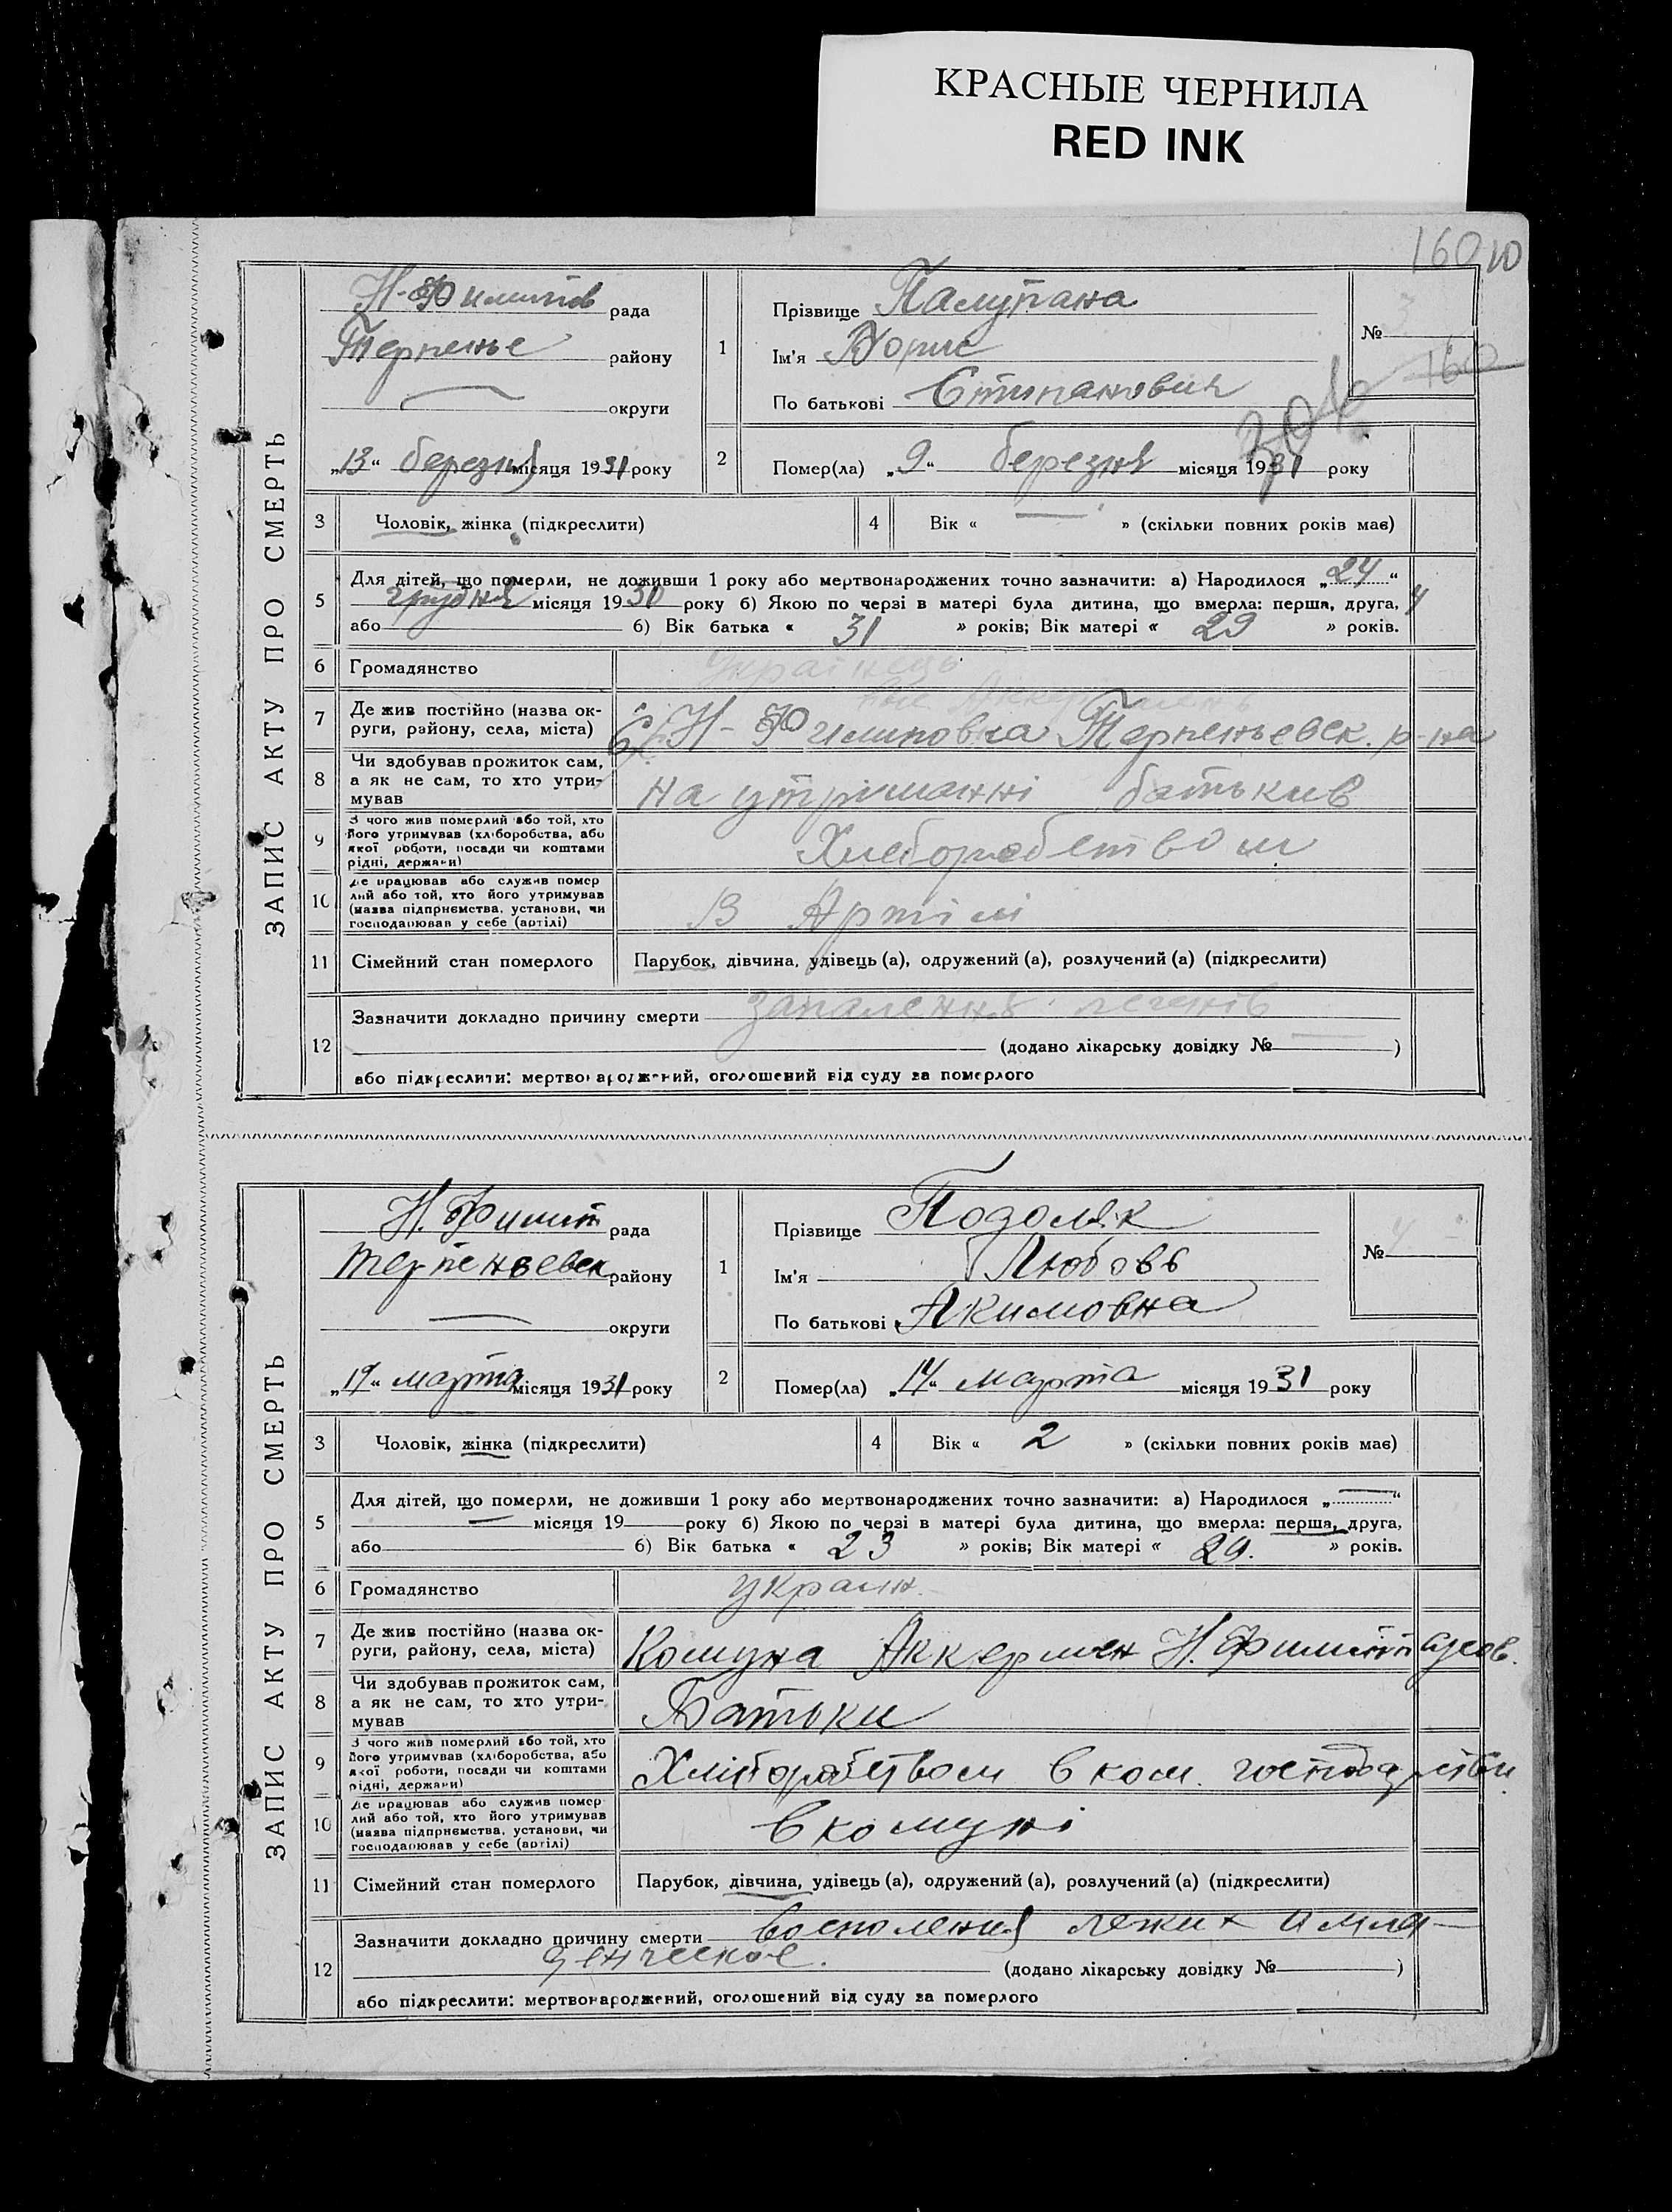 КРАСНЫЕ ЧЕРНИЛА
RED INK
160 10
ЗАПИС АКТУ ПРО СМЕРТЬ
Н-Филипів рада
Терпенье району
округи
„13“ березня місяця 1931 року
1
Прізвище Палупана
Ім'я Борис
По батькові Стипанович
№ 3
160
2
Помер(ла) „9“ березня місяця 1931 року
3 Чоловік, жінка (підкреслити)
4 Вік « — » (скільки повних років має)
5 Для дітей, що померли, не доживши 1 року або мертвонароджених точно зазначити: а) Народилося „24“
грудня місяця 1930 року б) Якою по черзі в матері була дитина, що вмерла: перша, друга, 4
або б) Вік батька « 31 » років; Вік матері « 29 » років.
6 Громадянство Українець
7 Де жив постійно (назва ок-
руги, району, села, міста) Н-Филиповка Терпеньевск. р-на
8 Чи здобував прожиток сам,
а як не сам, то хто утри-
мував на утріманні батьків
9 З чого жив померлий або той, хто
його утримував (хліборобства, або
якої роботи, посади чи коштами
рідні, держави) Хлеборобством
10 Де працював або служив помер
лий або той, хто його утримував
(назва підприємства, установи, чи
господарював у себе (артілі) В Артілі
11 Сімейний стан померлого Парубок, дівчина, удівець (а), одружений (а), розлучений (а) (підкреслити)
12 Зазначити докладно причину смерти запалення легенів
(додано лікарську довідку № — )
або підкреслити: мертвонароджений, оголошений від суду за померлого
ЗАПИС АКТУ ПРО СМЕРТЬ
Н. Филип рада
Терпеньевск району
округи
„19“ марта місяця 1931 року
1
Прізвище Подоляк
Ім'я Любовь
По батькові Акимовна
№ 4
2
Помер(ла) „14“ марта місяця 1931 року
3 Чоловік, жінка (підкреслити)
4 Вік « 2 » (скільки повних років має)
5 Для дітей, що померли, не доживши 1 року або мертвонароджених точно зазначити: а) Народилося „—“
— місяця 19 року б) Якою по черзі в матері була дитина, що вмерла: перша, друга,
або б) Вік батька « 23 » років; Вік матері « 29. » років.
6 Громадянство украин.
7 Де жив постійно (назва ок-
руги, району, села, міста) Комуна Аккермен Н. Филип
8 Чи здобував прожиток сам,
а як не сам, то хто утри-
мував Батьки
9 З чого жив померлий або той, хто
його утримував (хліборобства, або
якої роботи, посади чи коштами
рідні, держави) Хліборобством в ком. господарстви
10 Де працював або служив помер
лий або той, хто його утримував
(назва підприємства, установи, чи
господарював у себе (артілі) в комуні
11 Сімейний стан померлого Парубок, дівчина, удівець (а), одружений (а), розлучений (а) (підкреслити)
12 Зазначити докладно причину смерти восполения легких
(додано лікарську довідку № )
або підкреслити: мертвонароджений, оголошений від суду за померлого